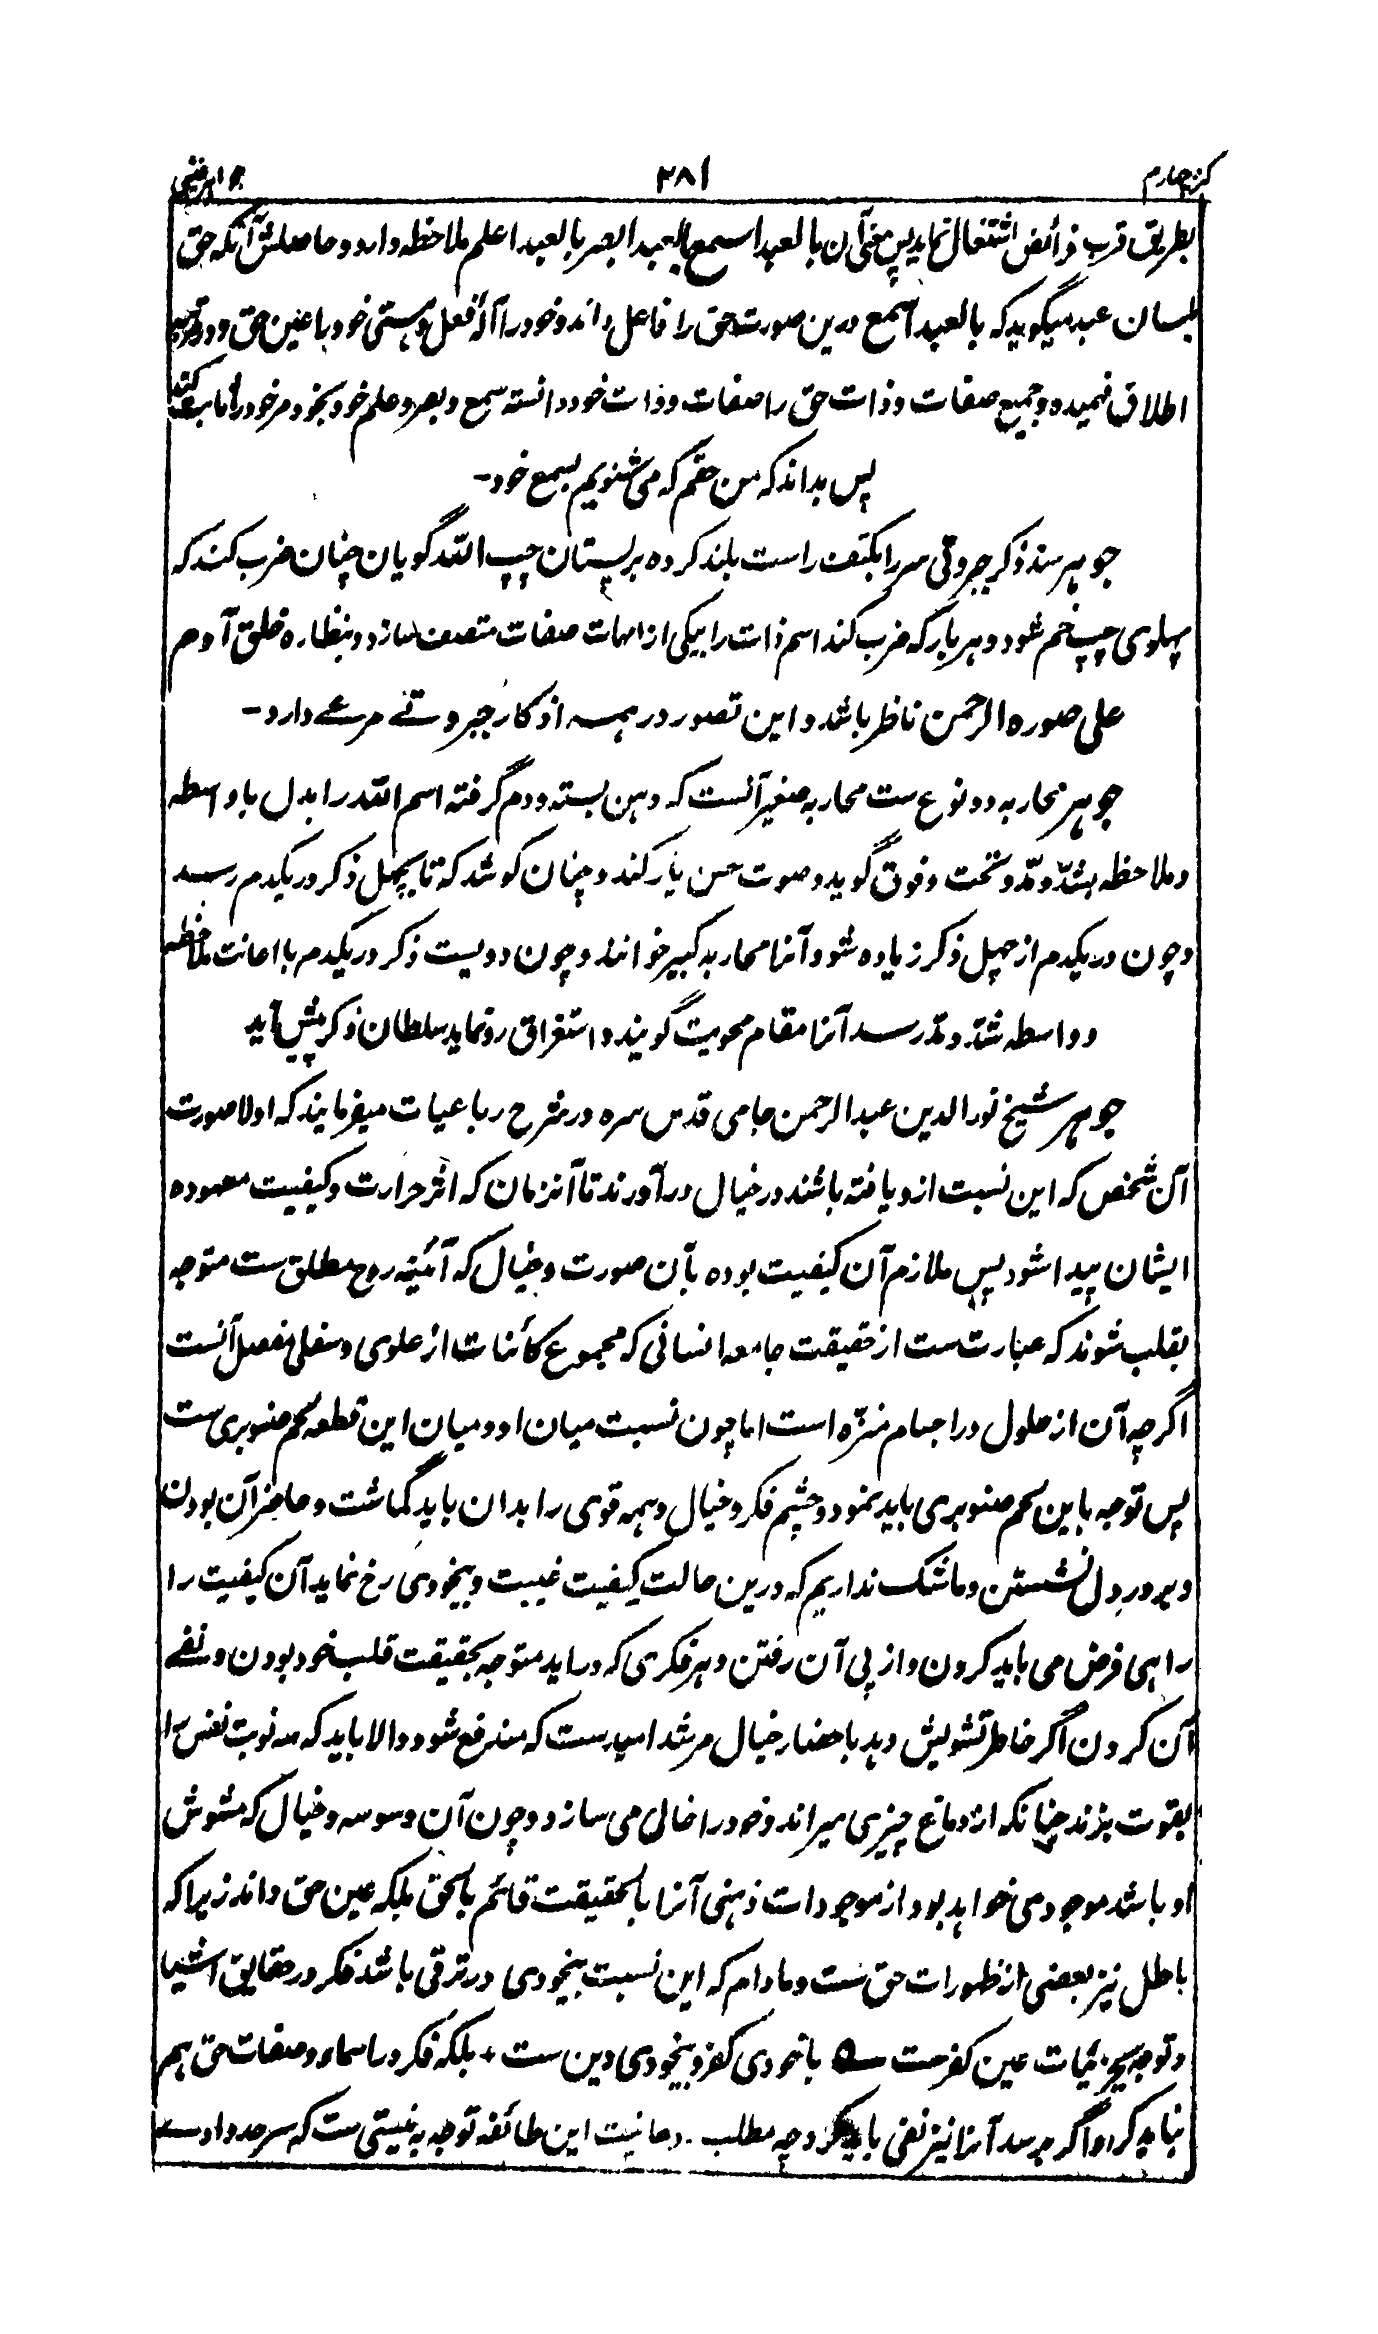 کنز چہارم
۲۸۱
جواہر غیبی
بطریق قرب فرائض اشتغال نماید پس معنی آن بالعبد اسمع بالعبد ابصر بالعبد اعلم ملاحظہ دارد و حاصلش آنکہ حق
بلسان عبد میگوید کہ بالعبد اسمع درین صورت حق را فاعل داند و خود را آلۂ فعل و ہستی خود با عین حق و در
اطلاق فہمیدہ و جمیع صفات و ذات حق را صفات و ذات خود دانستہ سمع و بصر و علم خود بخود مر خود را ثابت کند
پس بداند کہ من حقم کہ می شنویم بسمع خود۔
جوہر سند ذکر جبروتی سر را بکتف راست بلند کردہ بر پستان چپ اللہ گویان چنان ضرب کند کہ
پہلوی چپ خم شود و ہر بار کہ ضرب کند اسم ذات را بیکی از امہات صفات متصف سازد و بنظارہ خلق آدم
علی صورہ الرحمن ناظر باشد و این تصور در ہمہ اذکار جبروتے مرعے دارد۔
جوہر محاربہ دو نوع ست محاربہ صغیر آنست کہ دہن بستہ و دم گرفتہ اسم اللہ را بدل با واسطہ
و ملاحظہ بشدّ و مدّ و تحت و فوق گوید و صوت حسن یار کند و چنان کوشد کہ تا بچہل ذکر در یکدم رسد
و چون در یکدم از چہل ذکر زیادہ شود آنرا محاربہ کبیر خوانند و چون دویست ذکر در یکدم با اعانت ملاحظہ
و واسطہ شدّ و مدّ رسد آنرا مقام محویت گویند و استغراق رو نماید سلطان ذکر پیش آید
جوہر شیخ نور الدین عبد الرحمن جامی قدس سرہ در شرح رباعیات میفرمایند کہ اولا صورت
آن شخص کہ این نسبت از و یافتہ باشند در خیال درآورند تا آنزمان کہ اثر حرارت و کیفیت معہودہ
ایشان پیدا شود پس ملازم آن کیفیت بودہ بآن صورت و خیال کہ آئینہ روح مطلق ست متوجہ
بقلب شوند کہ عبارت ست از حقیقت جامعہ انسانی کہ مجموع کائنات از علوی و سفلی مفصل آنست
اگرچہ آن از حلول در اجسام منزّہ است اما چون نسبت میان او و میان این قطعہ لحم صنوبری ست
پس توجہ باین لحم صنوبری باید نمود و چشم فکر و خیال و ہمہ قوی را بدان باید گماشت و حاضر آن بودن
و بر در دل نشستن و ما شک نداریم کہ درین حالت کیفیت غیبت و بیخودی رخ نماید آن کیفیت را
راہی فرض می باید کردن و از پی آن رفتن و ہر فکری کہ درآید متوجہ بحقیقت قلب خود بودن و نفے
آن کردن اگر خاطر تشویش دہد باحضار خیال مرشد امیدست کہ مندفع شود والا باید کہ سہ نوبت نفس را
بقوت بزند چنانکہ از دماغ چیزی میراند و خود را خالی می سازد و چون آن وسوسہ و خیال کہ مشوش
او باشد موجودی خواہد بود از موجودات ذہنی آنرا بالحقیقت قائم بالحق بلکہ عین حق داند زیرا کہ
باطل نیز بعضی از ظہورات حق ست و مادام کہ این نسبت بیخودی در ترقی باشد فکر در حقایق اشیا
و توجہ بجزئیات عین کفرست ؎ باخودی کفر و بیخودی دین ست + بلکہ فکر در اسماء و صفات حق ہم
نباید کرد و اگر برسد آنرا نیز نفی باید کرد چہ مطلب این طائفہ توجہ بہ نیستی ست کہ سرحد وادے